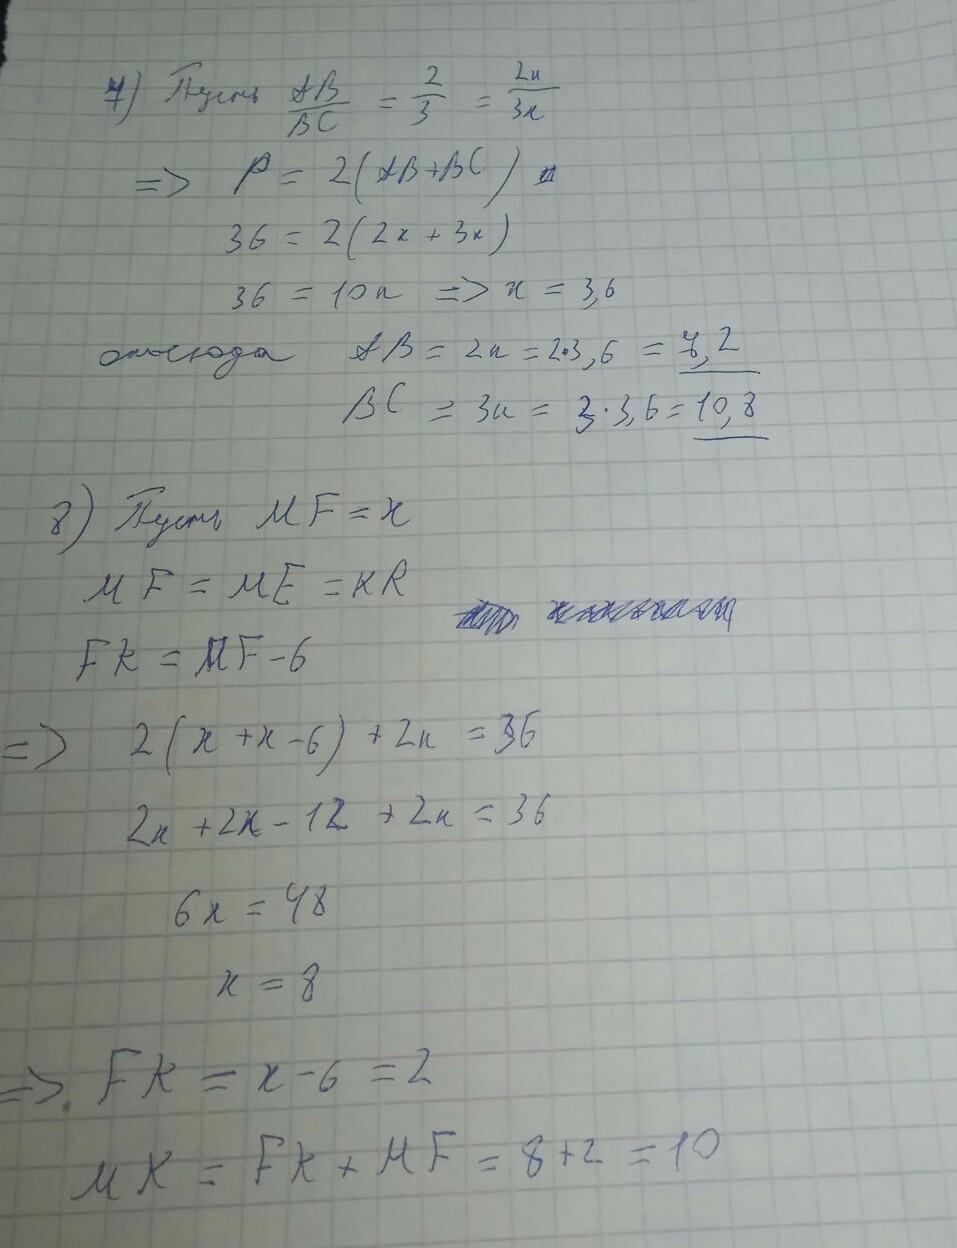 7) Пусть AB/BC = 2/3 = 2x/3x
=> P = 2(AB+BC)
36 = 2(2x + 3x)
36 = 10x => x = 3,6
отсюда AB = 2x = 2·3,6 = 7,2
BC = 3x = 3·3,6 = 10,8
8) Пусть MF = x
MF = ME = KR
FK = MF - 6
=> 2(x + x - 6) + 2x = 36
2x + 2x - 12 + 2x = 36
6x = 48
x = 8
=> FK = x - 6 = 2
MK = FK + MF = 8 + 2 = 10